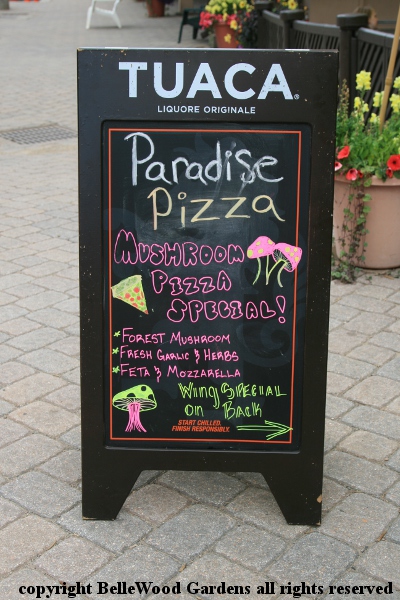 TUACA®
LIQUORE ORIGINALE
Paradise
Pizza
MUSHROOM
PIZZA
SPECIAL!
* FOREST MUSHROOM
* FRESH GARLIC & HERBS
* FETA & MOZZARELLA
WING SPECIAL
ON BACK
START CHILLED.
FINISH RESPONSIBLY.
copyright BelleWood Gardens all rights reserved